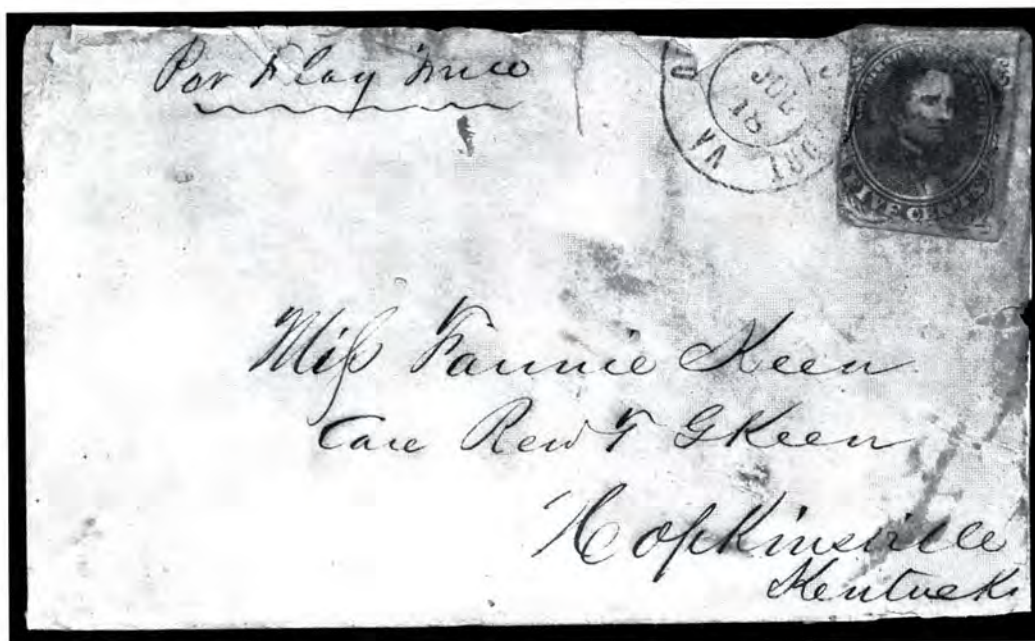 Per Flag Truce
JUL
18
ORT VA
FIVE CENTS
Miss Fannie Keen
Care Rev T G Keen
Hopkinsville
Kentuck